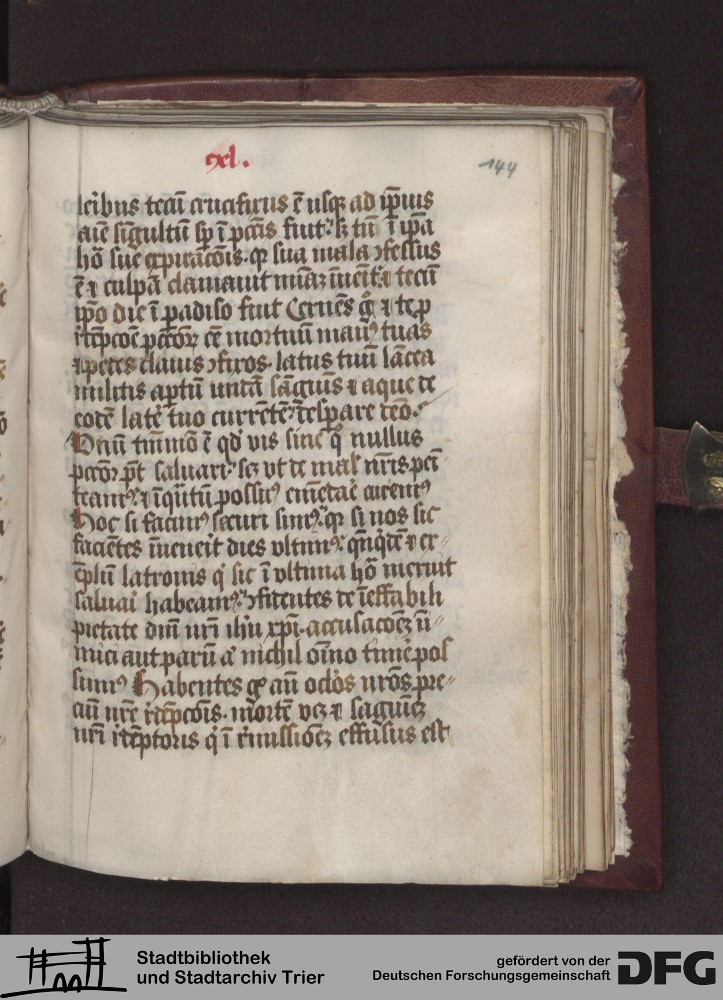 cxl.
144
leribus tecū crucifixus ē usqꝫ ad ip̄ius
aīe sīgultū sp̄ ī pctīs fuit· sꝫ tn̄ ī ip̄a
hō sue exp̄iracōis· qꝛ sua mala ↄfessus
ē ⁊ culpā clamauit mīaꝫ īuēit· ⁊ tecū
ip̄o die ī padiso fuit Cernēs gͦ ⁊ te ꝓ
pctōꝝ eē mortuū manꝰ tuas
⁊ pedes clauis ↄfixos· latus tuū lācea
militis aptū undā sāguīs ⁊ aque de
eodē lateꝛ tuo currētē· despare
Vnū tm̄mō ē qd̄ vis sine qͦ nullus
pctōꝝ pt̄ saluari· scꝫ vt de mal̄ nr̄is peī
teamꝰ· ⁊ īqͣntū possūꝰ emēdaꝛ curemꝰ
Hoc si facimꝰ securi simꝰ· qꝛ si nos sic
faciētes īuenerit dies vltimꝰ· ⁊ ex
ēplū latronis qͥ sic ī vltima hō meruit
saluaꝛ habeamꝰ· ↄfidentes de īeffabili
pietate dn̄i nr̄i ih̄u xp̄i· accusacōeꝫ ī
mici aut parū aꝛ nichil oīno timeꝛ pos
sumꝰ Habentes aūt oclōs nr̄os pre
ciū nr̄e rēdēpcōis· mortē vꝫ ⁊ sāguīeꝫ
nr̄i redēptoris qͥ ī remissiōeꝫ effusus est
Stadtbibliothek
und Stadtarchiv Trier
gefördert von der
Deutschen Forschungsgemeinschaft
DFG